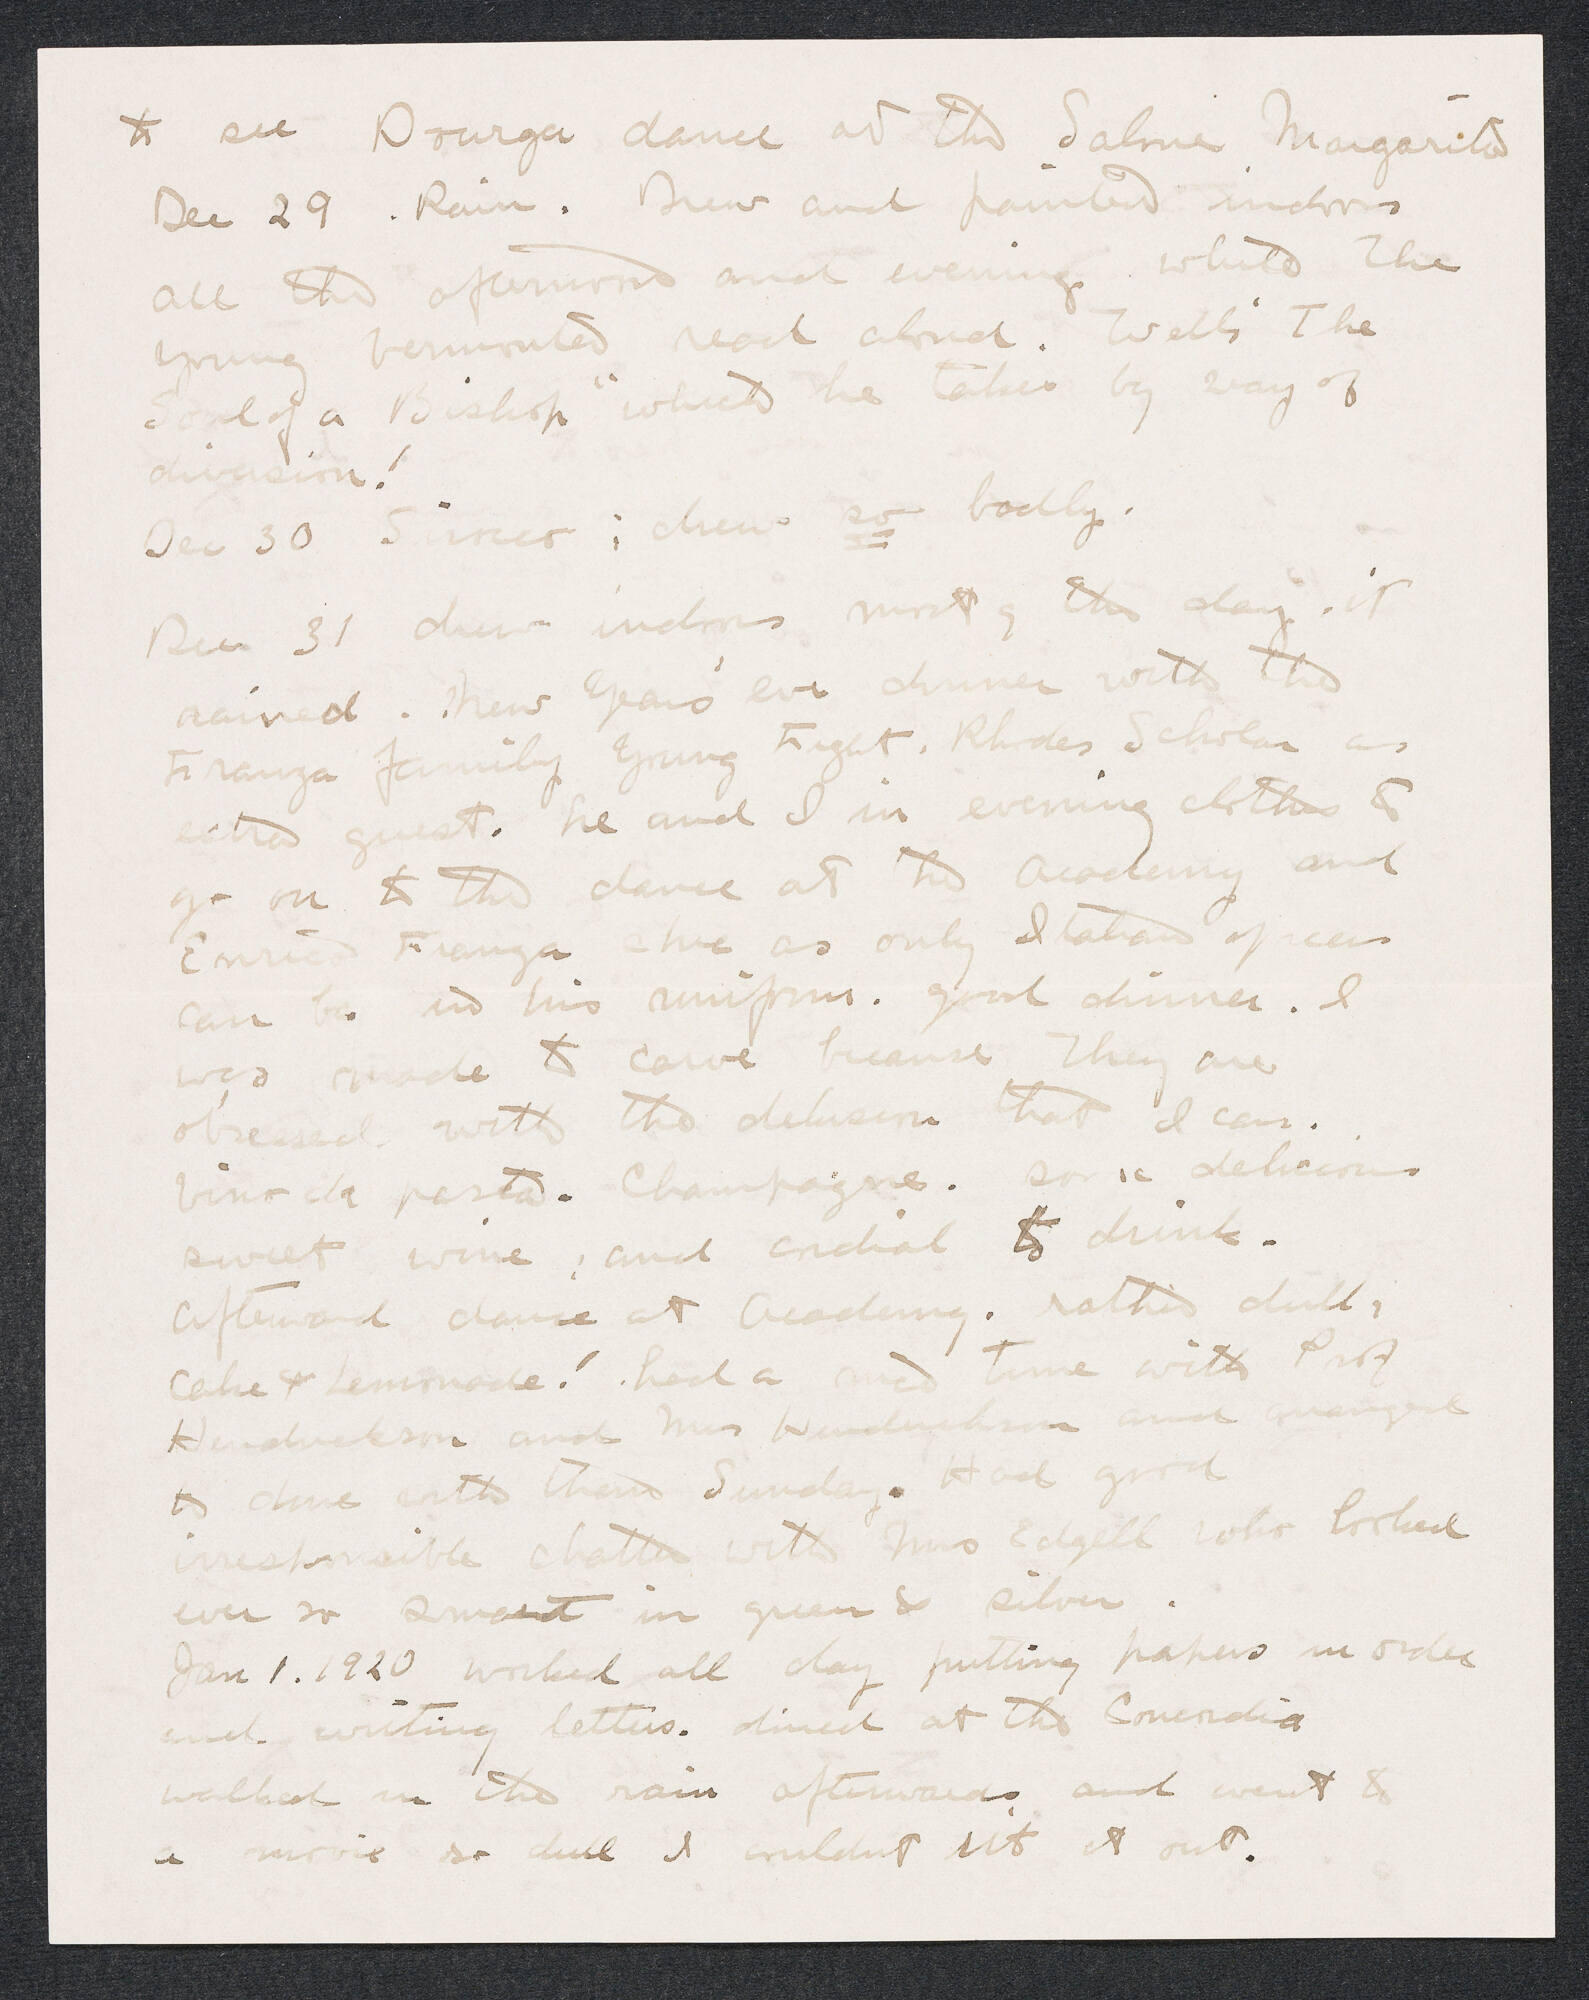 to see Dourga dance at the Salone Margarita
Dec 29 . Rain. Drew and painted indoors
all the afternoon and evening while The
young Vermonter read aloud. Wells' The
Soul of a Bishop" which he takes by way of
diversion!
Dec 30 ; drew so badly.
Dec 31 drew indoors most of the day. it
rained. New Years' eve dinner with the
Franza family Young Fight. Rhodes Scholar as
extra guest. he and I in evening clothes to
go on to the dance at the Academy and
Enrico Franza chic as only Italian officers
can be in his uniform. good dinner. I
was made to carve because They are
obsessed with the delusion that I can.
Vino da pasto. Champagne. some delicious
sweet wine, and cordial to drink.
Afterward dance at Academy. rather dull,
Cake & Lemonade! had a nice time with Prof
Hendrickson and Mrs Hendrickson and arranged
to dine with them Sunday. Had good
irresponsible chatter with Mrs Edgell who looked
ever so smart in green & silver.
Jan 1. 1920 worked all day putting papers in order
and writing letters. dined at the Concordia
walked in the rain afterwards, and went to
a movie so dull I couldnt sit it out.